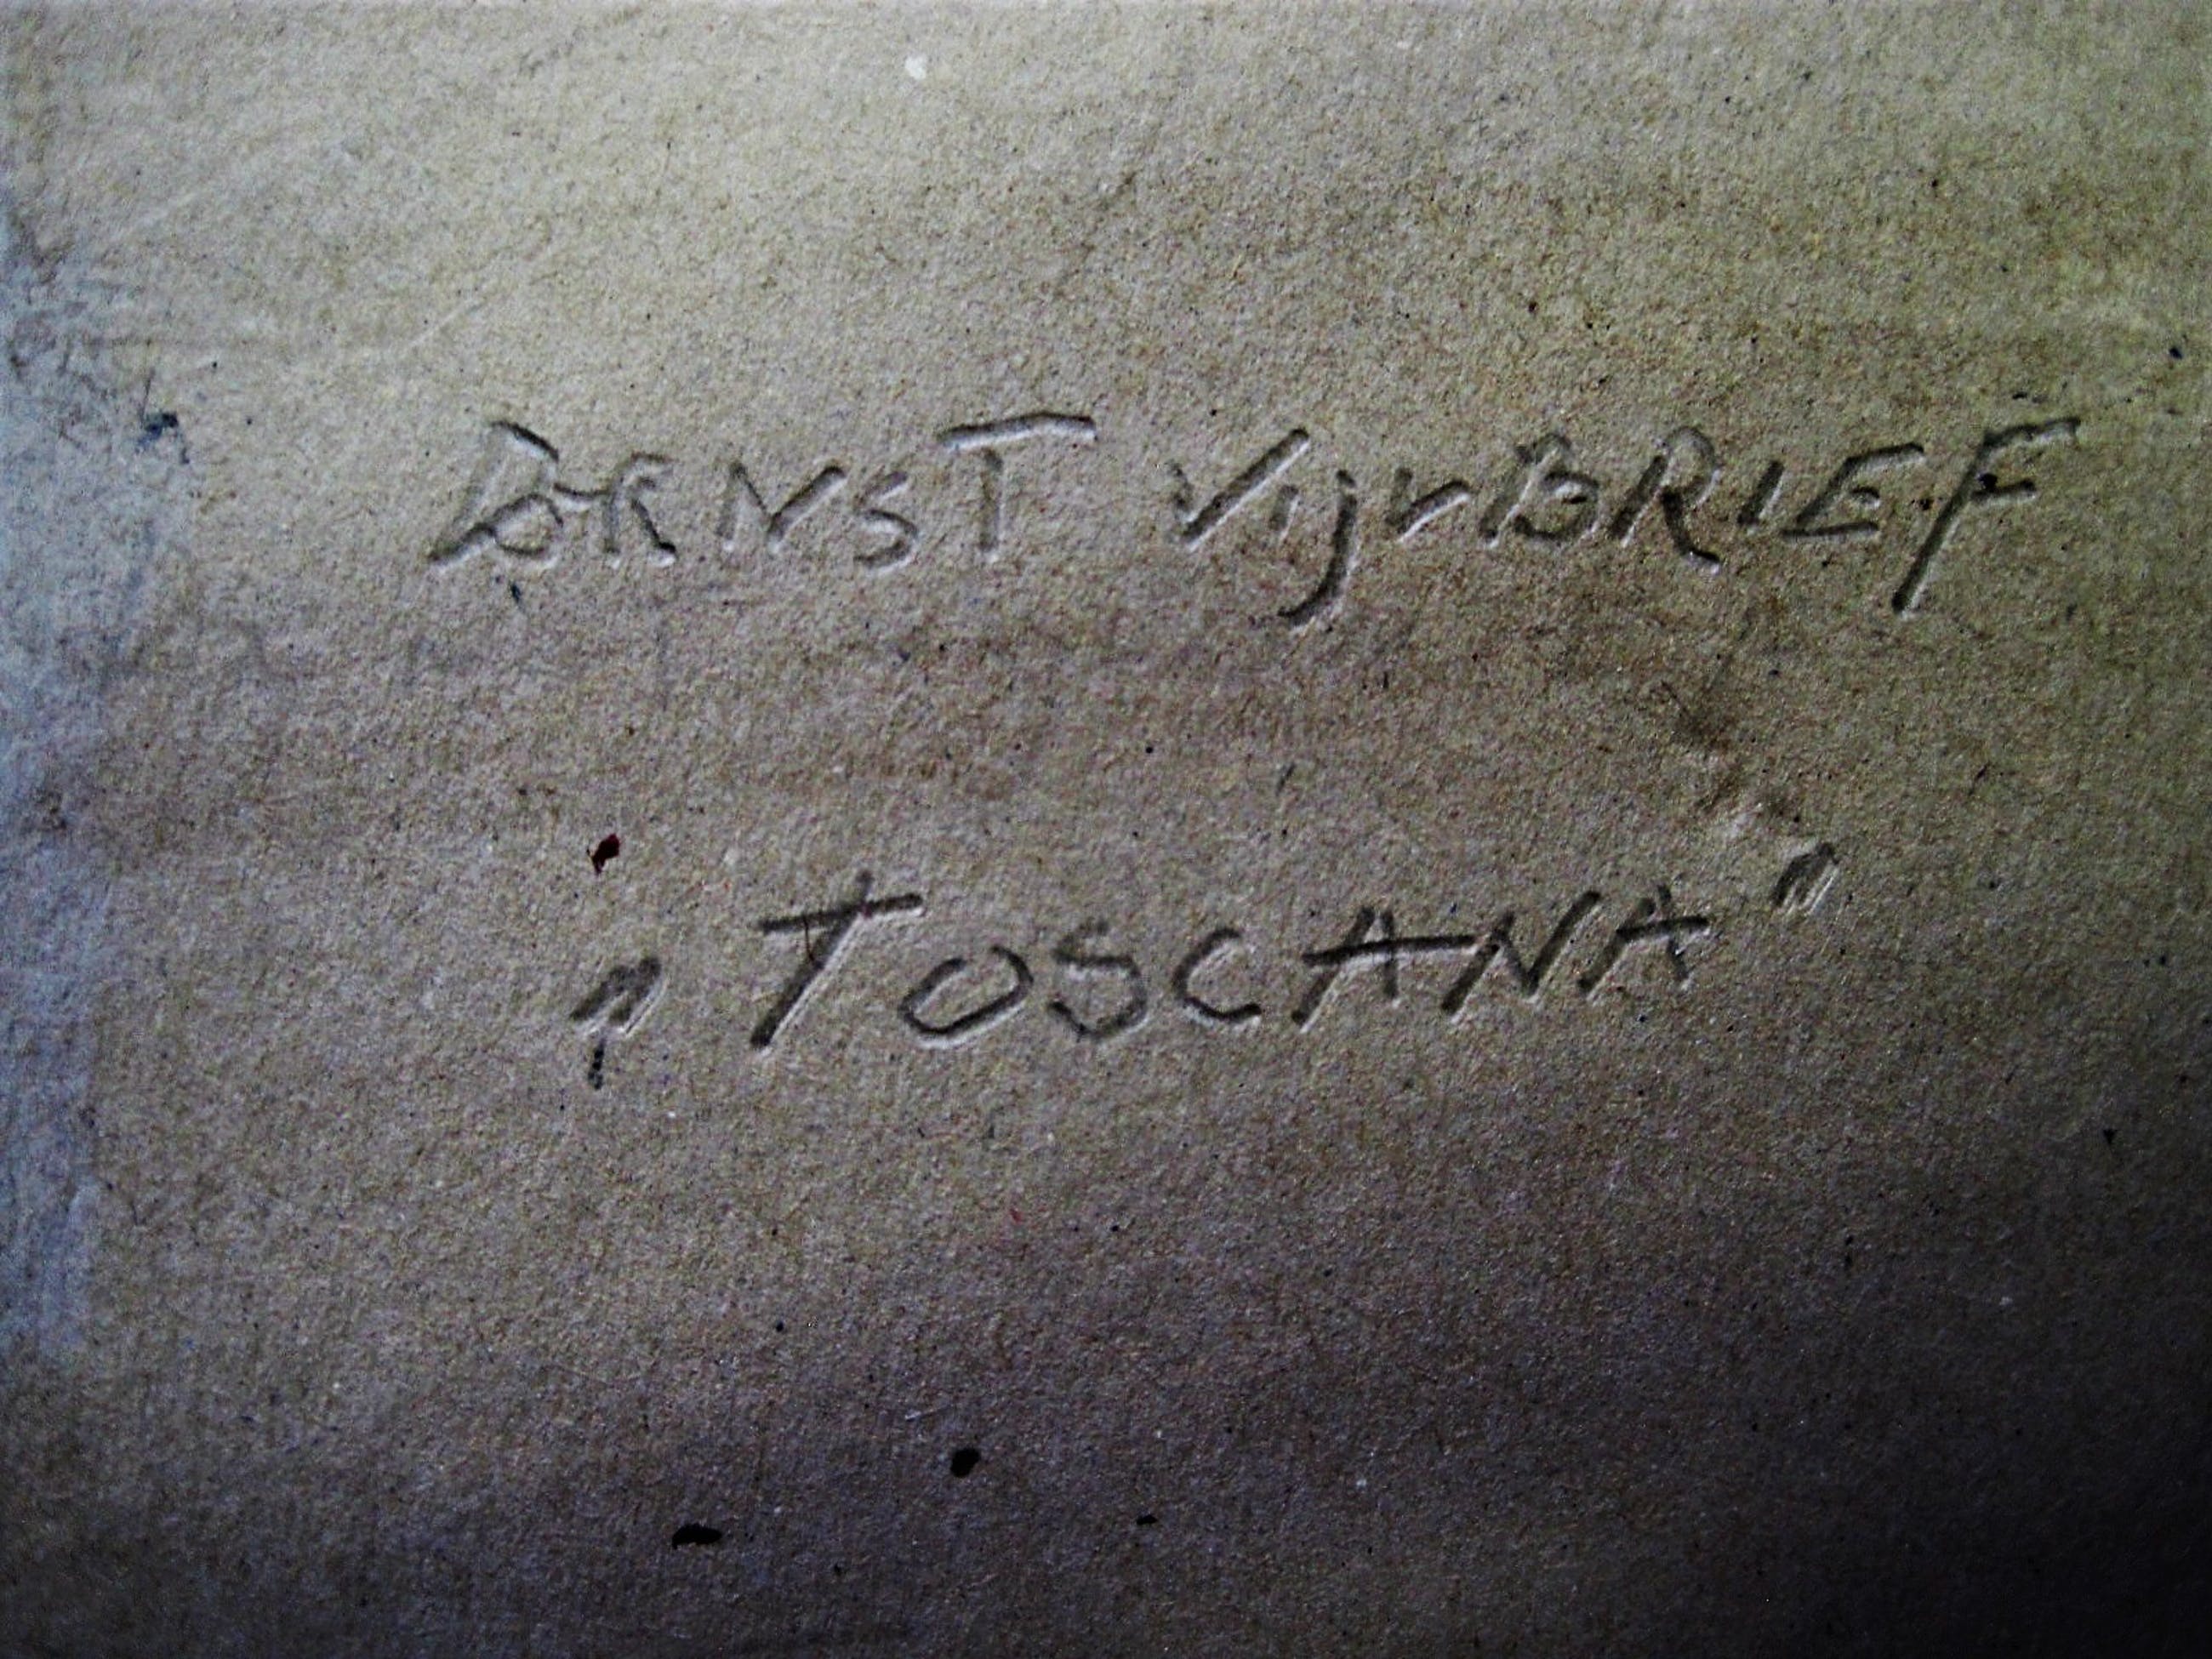 ERNST VijvBRIEF
"TOSCANA"